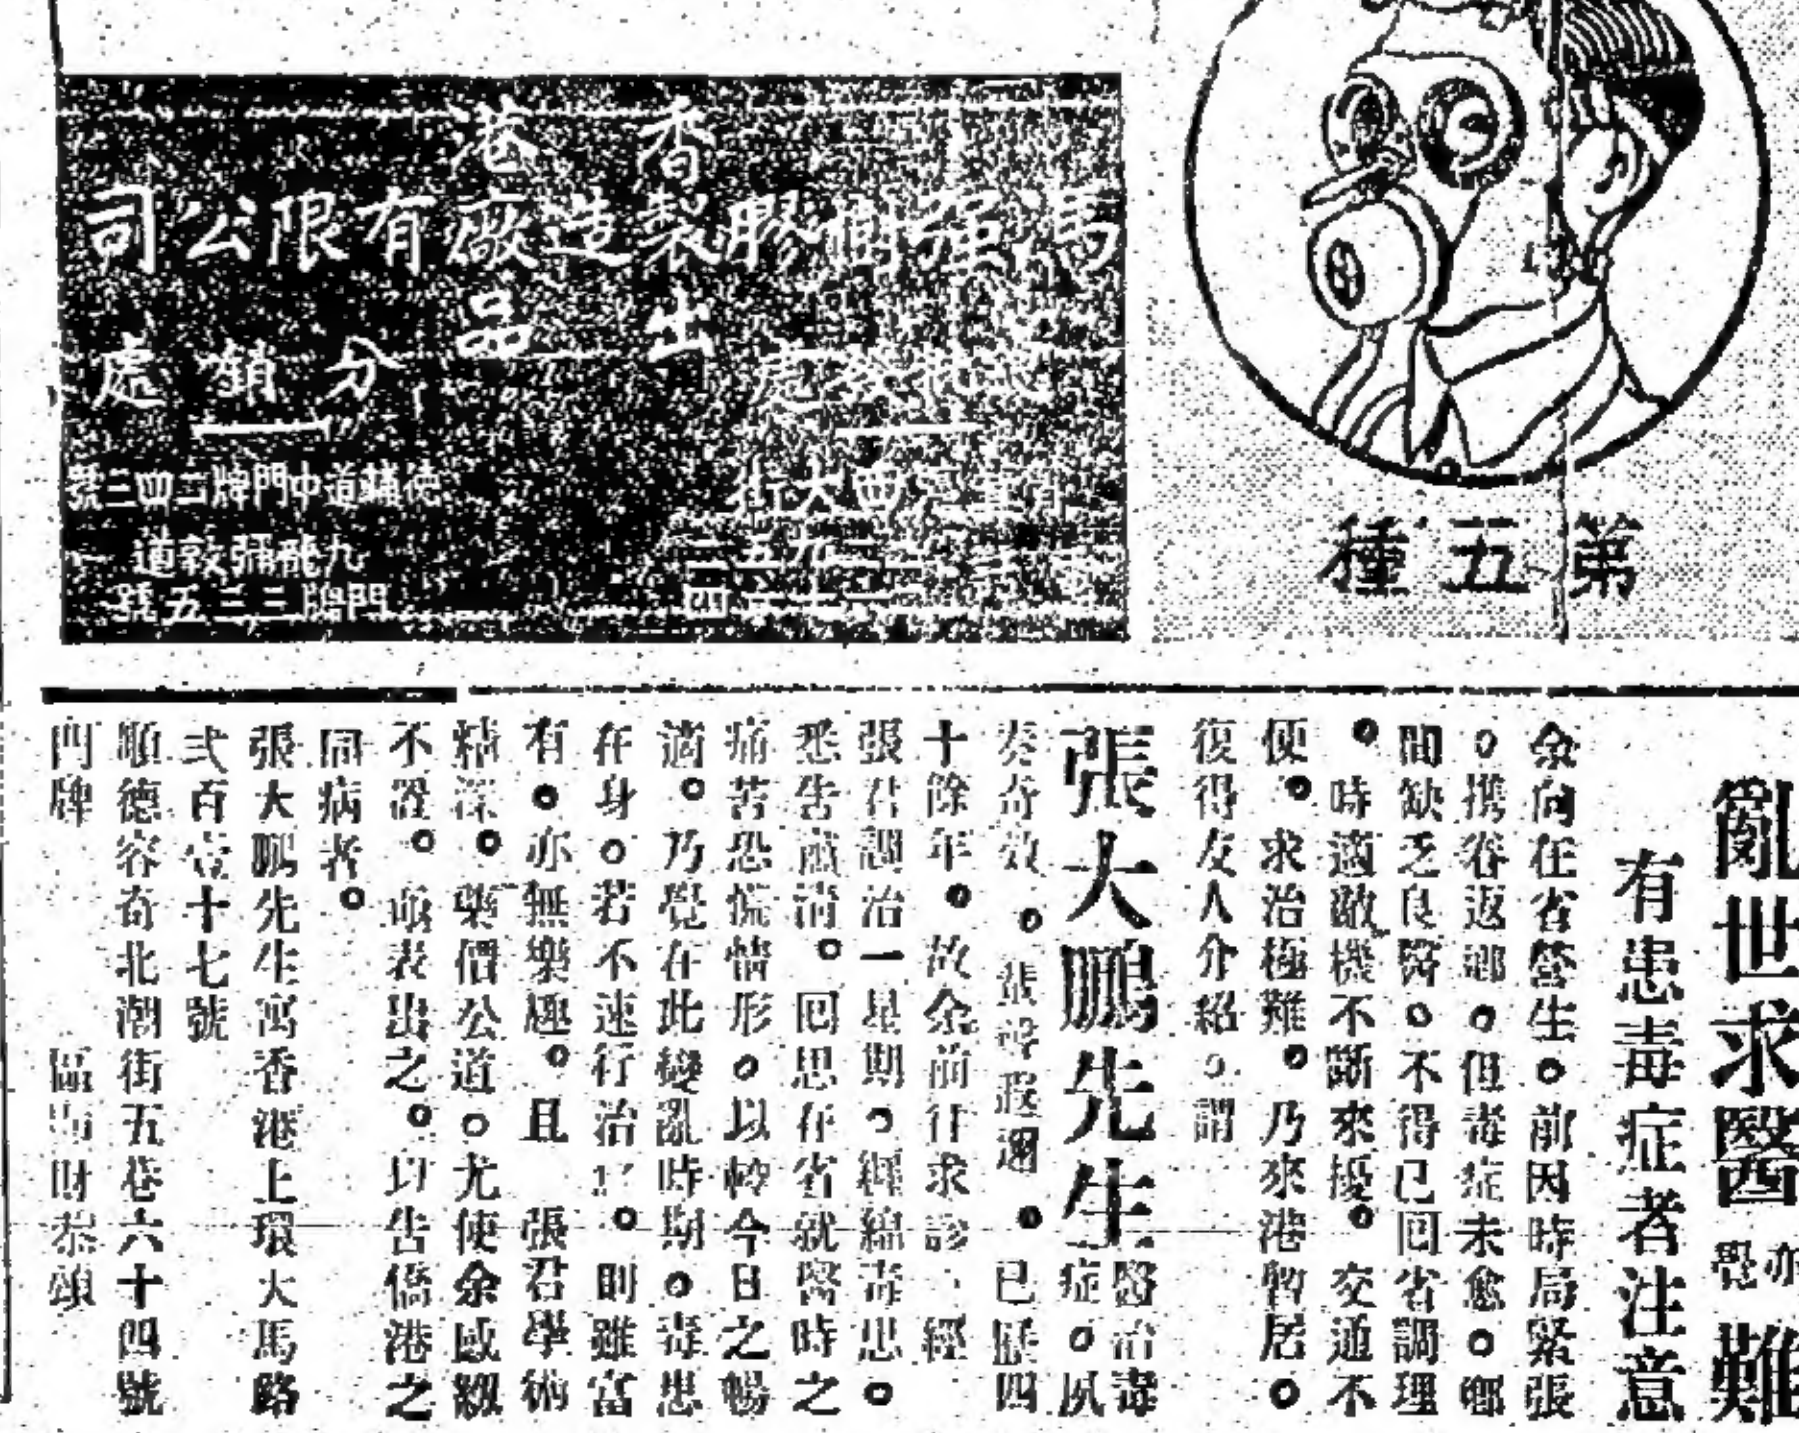 香港
馮強樹膠製造廠有限公司
出品
總批發處
分銷處
大街
德輔道中門牌二四三號
九龍彌敦道
門牌三三五號
第五種
亂世求醫亦覺難
有患毒症者注意
余向在省營生。前因時局緊張
。携眷返鄉。但毒症未愈。鄉
間缺乏良醫。不得已回省調理
。時適敵機不斷來擾。交通不
便。求治極難。乃來港暫居。
復得友人介紹。謂
張大鵬先生醫治毒症。夙
奏奇效。蜚聲遐邇。已歷四
十餘年。故余前往求診、經
張君調治一星期。纏綿毒患。
悉告滅消。回思在省就醫時之
痛苦恐慌情形。以較今日之暢
適。乃覺在此變亂時期。毒患
在身。若不速行治。則雖富
有。亦無樂趣。且 張君學術
精深。藥價公道。尤使余感級
不置。故表出之。以告僑港之
同病者。
張大鵬先生寓香港上環大馬路
弍百壹十七號
順德容奇北潮街五巷六十四號
門牌 區 財恭頌